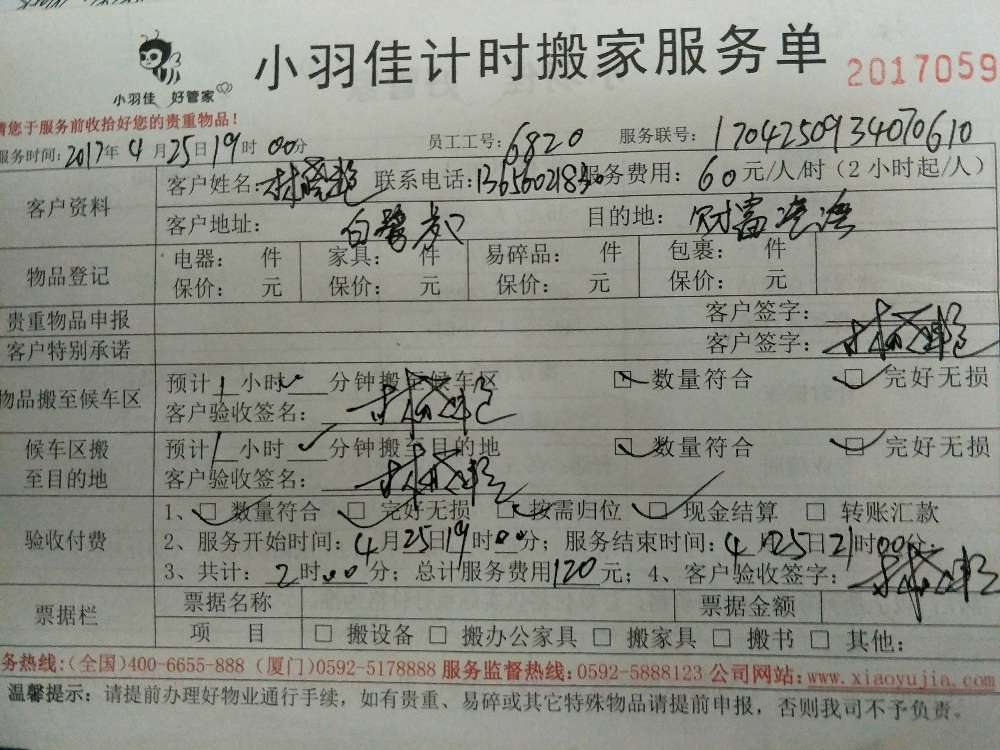 小羽佳计时搬家服务单
小羽佳 好管家
2017059
请您于服务前收拾好您的贵重物品！
服务时间：2017年4月25日19时00分 员工工号：6820 服务联号：1704250934070610
客户资料 客户姓名： 联系电话： 服务费用：60元/人/时（2小时起/人）
客户地址：白鹭 目的地：财富港湾
物品登记 电器： 件 家具： 件 易碎品： 件 包裹： 件
保价： 元 保价： 元 保价： 元 保价： 元
贵重物品申报 客户签字：
客户特别承诺 客户签字：
物品搬至候车区 预计1小时 分钟搬至候车区 数量符合 完好无损
客户验收签名：
候车区搬至目的地 预计1小时 分钟搬至目的地 数量符合 完好无损
客户验收签名：
验收付费 1、 数量符合 完好无损 按需归位 现金结算 转账汇款
2、服务开始时间：4月25日19时00分；服务结束时间：4月25日21时00分；
3、共计：2时00分；总计服务费用120元；4、客户验收签字：
票据栏 票据名称 票据金额
项目 搬设备 搬办公家具 搬家具 搬书 其他：
务热线：（全国）400-6655-888（厦门）0592-5178888 服务监督热线：0592-5888123 公司网站：www.xiaoyujia.com
温馨提示：请提前办理好物业通行手续，如有贵重、易碎或其它特殊物品请提前申报，否则我司不予负责。